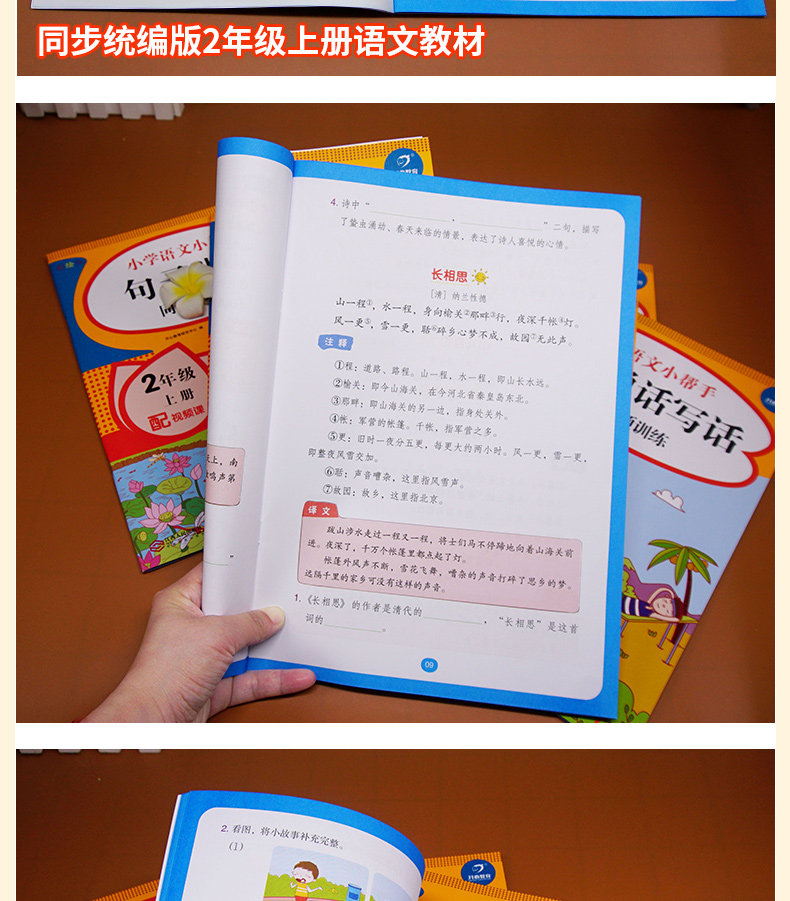 同步统编版2年级上册语文教材
4. 诗中“____________，____________”二句，描写
了蛰虫涌动、春天来临的情景，表达了诗人喜悦的心情。
长相思
［清］纳兰性德
山一程①，水一程，身向榆关②那畔③行，夜深千帐④灯。
风一更⑤，雪一更，聒⑥碎乡心梦不成，故园⑦无此声。
注释
①程：道路、路程。山一程，水一程，即山长水远。
②榆关：即今山海关，在今河北省秦皇岛东北。
③那畔：即山海关的另一边，指身处关外。
④帐：军营的帐篷。千帐，指军营之多。
⑤更：旧时一夜分五更，每更大约两小时。风一更，雪一更，
即整夜风雪交加。
⑥聒：声音嘈杂，这里指风雪声。
⑦故园：故乡，这里指北京。
译文
跋山涉水走过一程又一程，将士们马不停蹄地向着山海关前
进。夜深了，千万个帐篷里都点起了灯。
帐篷外风声不断，雪花飞舞，嘈杂的声音打碎了思乡的梦。
远隔千里的家乡可没有这样的声音。
1.《长相思》的作者是清代的____________，“长相思”是这首
词的____________。
09
小学语文小
句
2年级
上册
配视频课
上，南
鸣声第
语文小帮手
话写话
训练
2. 看图，将小故事补充完整。
(1)
开心教育